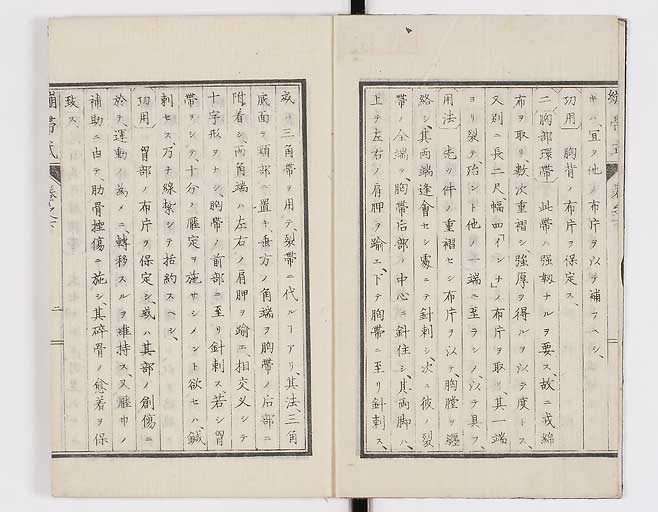 キハ、宜ク他ノ布片ヲ以テ補フヘシ、
功用 胸背ノ布片ヲ保定ス、
二胸部環帶 此帶ハ強靱ナルヲ要ス、故ニ或綿
布ヲ取リ、数次重褶シ、強厚ヲ得ルヲ以テ度トス、
又別ニ長二尺、幅四「インチ」ノ布片ヲ取リ、其一端
ヨリ裂テ殆ント他ノ一端ニ至ラシメ、以テ具フ、
用法 先ツ件ノ重褶セシ布片ヲ以テ、胸膛ヲ纏
絡シ、其両端逢會セシ處ニテ針刺シ、次ニ彼ノ裂
帶ノ全端ヲ、胸帶后部ノ中心ニ針住シ、其両脚ハ、
上テ左右ノ肩胛ヲ踰エ、下テ胸帶ニ至リ針刺ス、
或ハ三角帶ヲ用テ、裂帶ニ代ルヿアリ、其法、三角
底面ヲ頸部ニ置キ、垂方ノ角端ヲ胸帶ノ后部ニ
附着シ、両角端ハ左右ノ肩胛ヲ踰エ、相交叉シテ
十字形ヲナシ、胸帶ノ前部ニ至リ針刺ス、若シ胃
帶ヲシテ、十分ノ壓定ヲ施サシメント欲セハ、鍼
刺セス、方テ線禁シテ括約スヘシ、
功用 胃部ノ布片ヲ保定シ、或ハ其部ノ創傷ニ
於テ、運動ノ為メニ、轉移スルヲ維持ス、又壓巾ノ
補助ニ由テ、肋骨挫傷ニ施シ、其碎骨ノ愈着ヲ保
致ス、
二